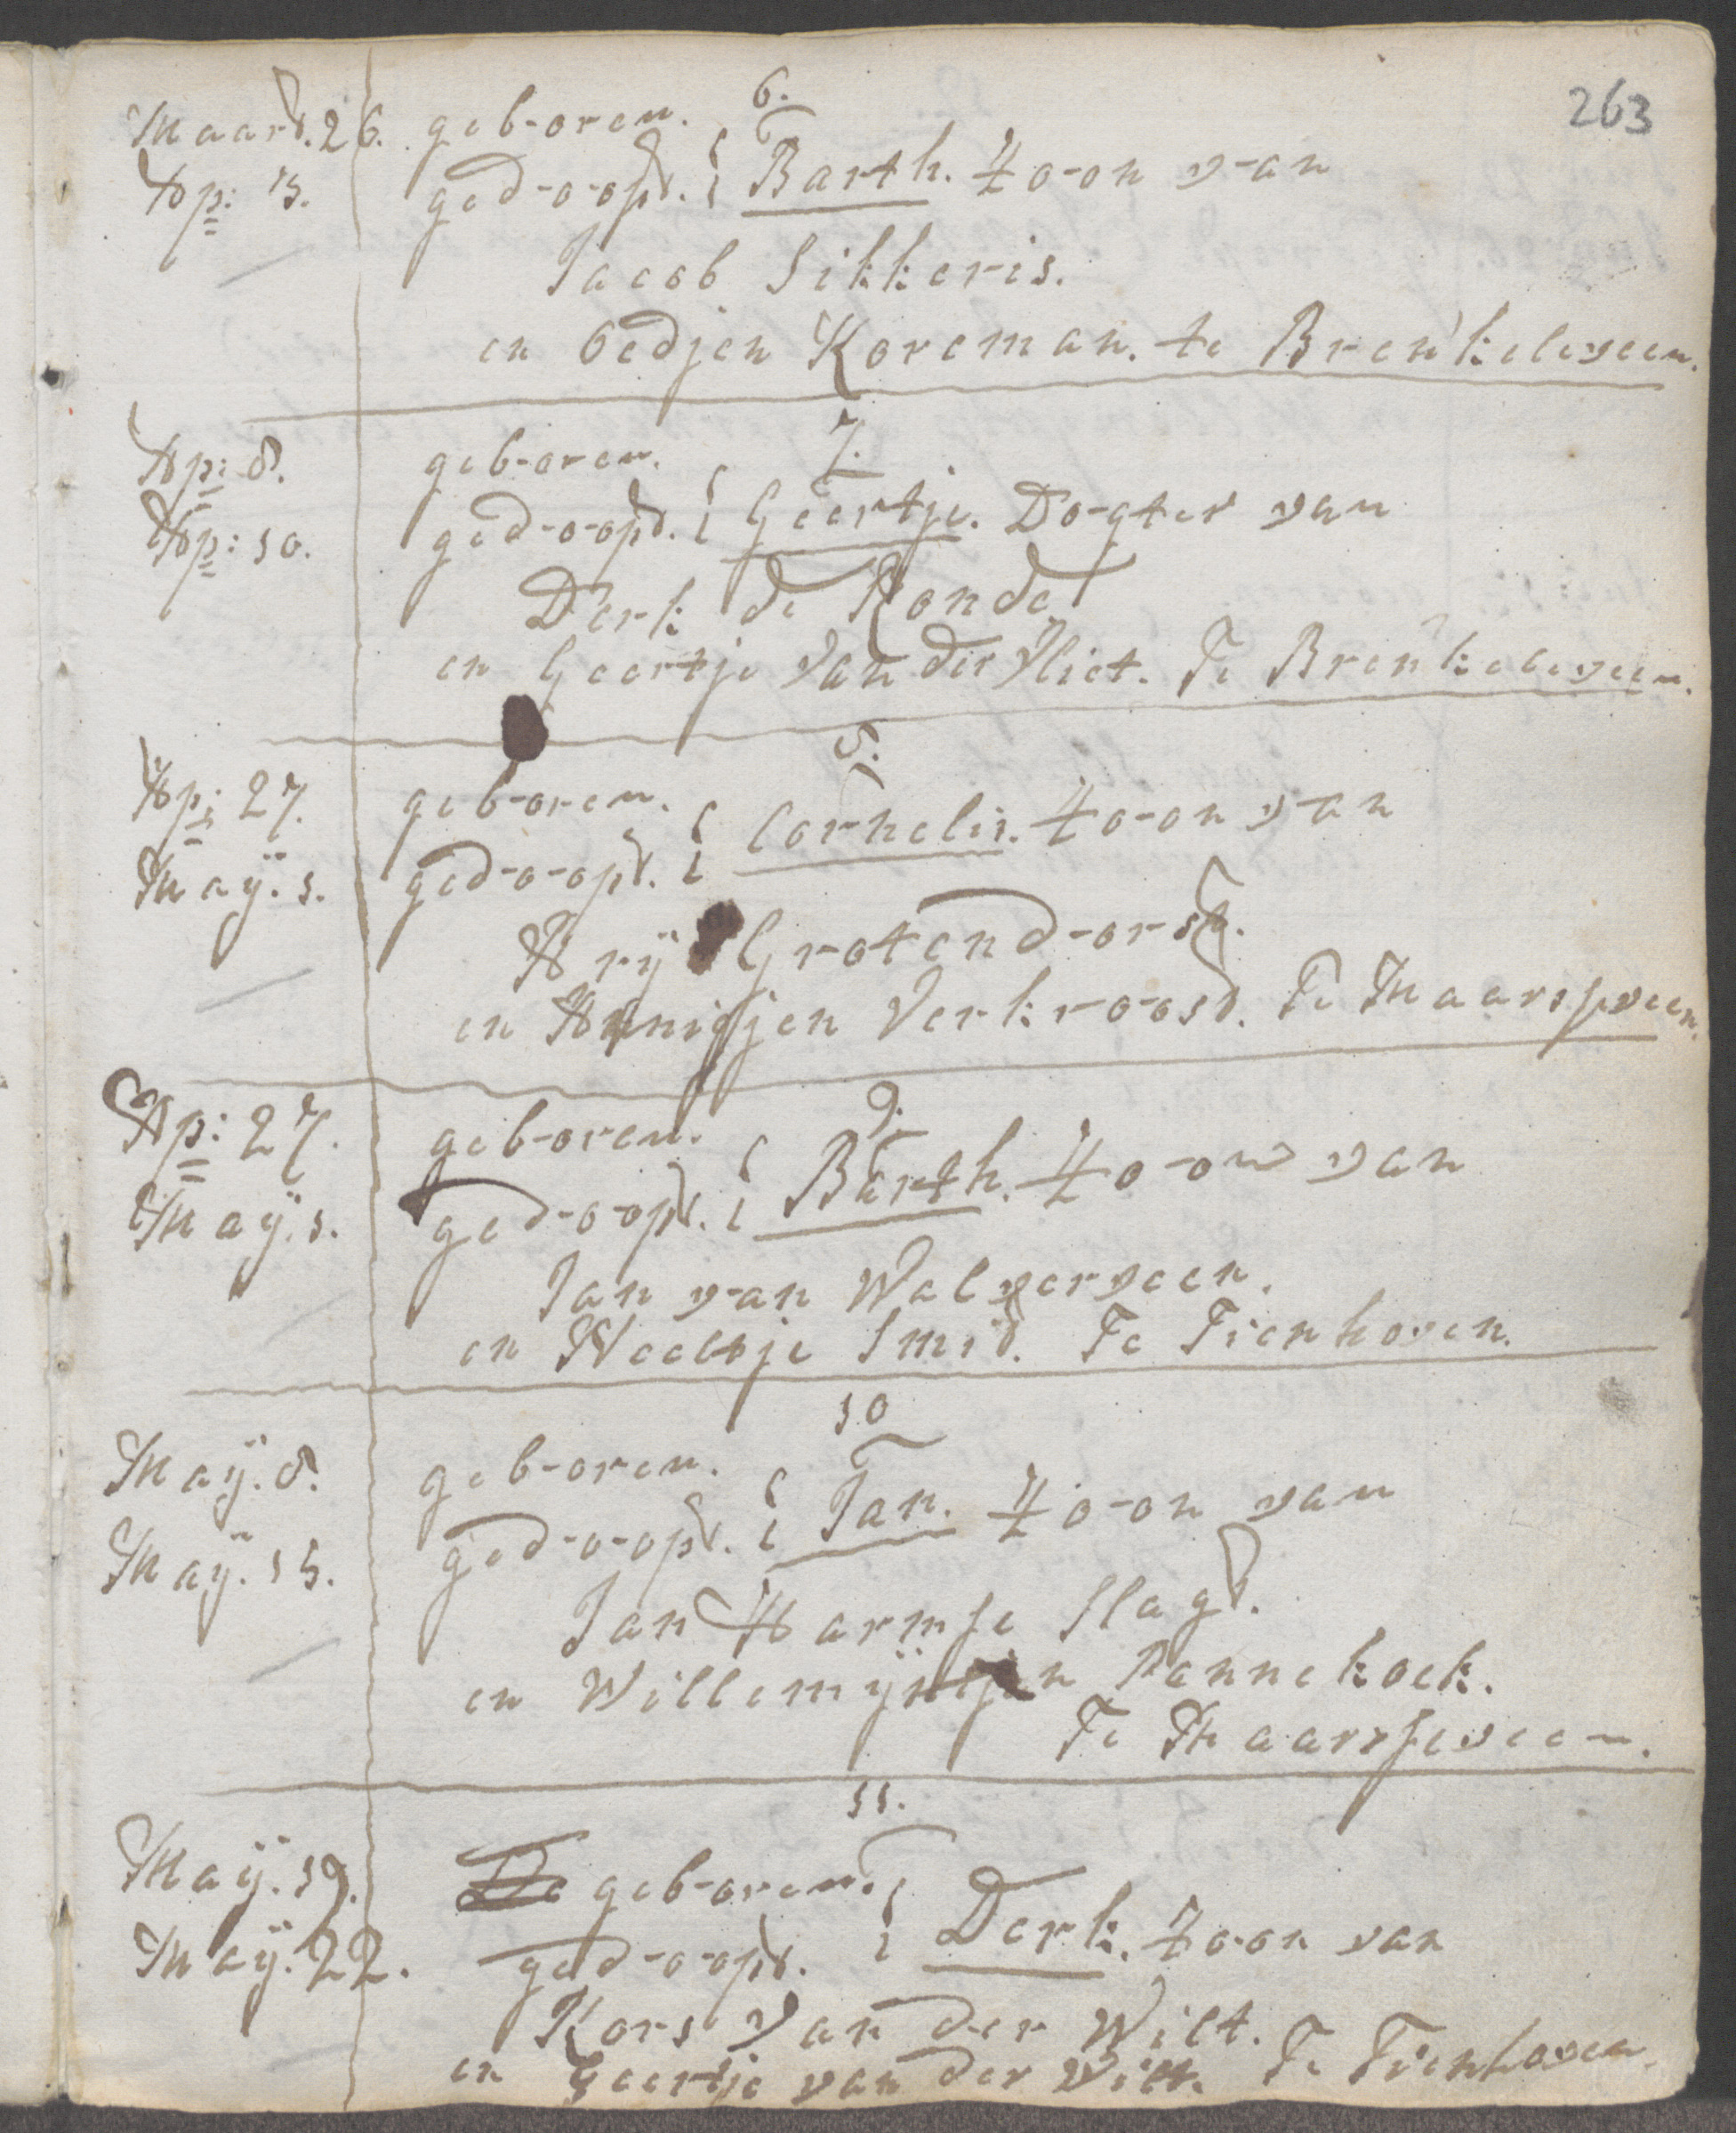 263
6.
Maart. 26. geboren.
Ap: 13. gedoopt. Barth. Zoon van
Jacob Sikkeris.
en Oedjen Koreman. te Breukeleveen.
7.
Ap: 8. geboren.
Ap: 10. gedoopt. Geertje. Dogter van
Derk de Ronde
en Geertje van der Vliet. Te Breukeleveen.
8.
Ap: 27. geboren.
Maÿ. 1. gedoopt. Cornelis. Zoon van
Arÿ Grotendorst.
en Annigjen Verkroost. Te Maarsseveen.
9.
Ap: 27. geboren.
Maÿ. 1. gedoopt. Barth. Zoon van
Jan van Walverveen.
en Neeltje Smit. Te Tienhoven.
10
Maÿ. 8. geboren.
Maÿ. 15. gedoopt. Jan. Zoon van
Jan Harmse Slagt.
en Willemÿntjen Pannekoek.
Te Maarsseveen.
11.
Maÿ. 19. De geboren.
Maÿ. 22. gedoopt. Derk. Zoon van
Kors van der Wilt.
en Geertje van der Vliet. Te Tienhoven.